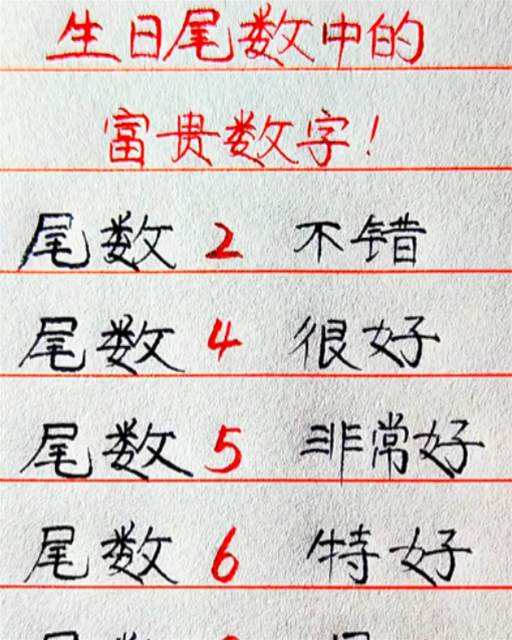 生日尾数中的
富贵数字！
尾数 2 不错
尾数 4 很好
尾数 5 非常好
尾数 6 特好
尾数